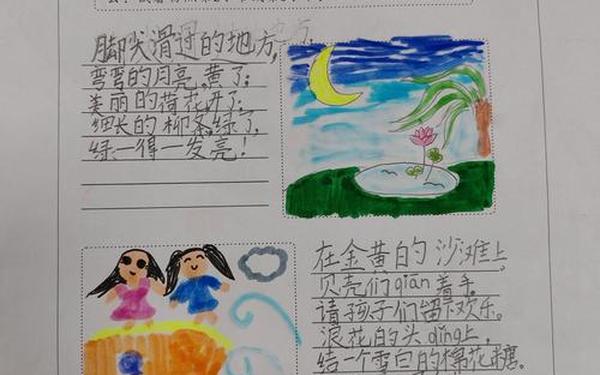 脚尖滑过的地方,
弯弯的月亮,黄了;
美丽的荷花,开了;
细长的柳条,绿了,
绿一得一发亮!
在金黄的沙滩上。
贝壳们qian着手。
请孩子们留下欢乐。
浪花的头dǐng上,
结一个雪白的棉花糖。